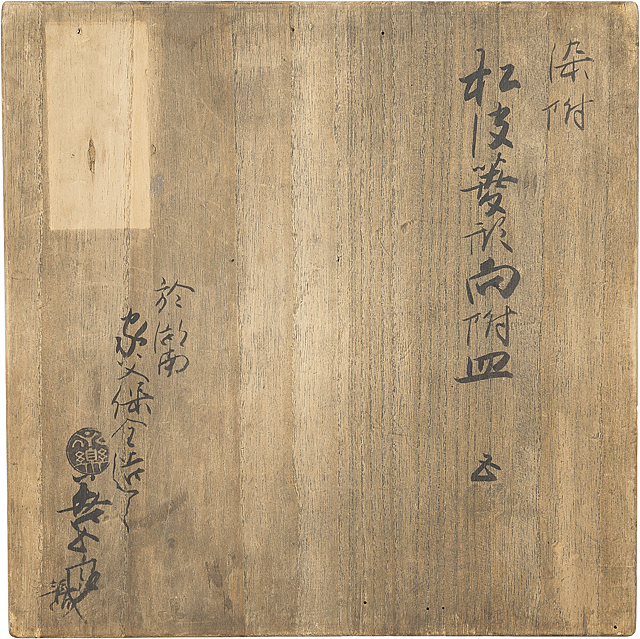 染附
松皮菱形向附皿 五
於湖南
家父保全造之
永樂
善五郎
識